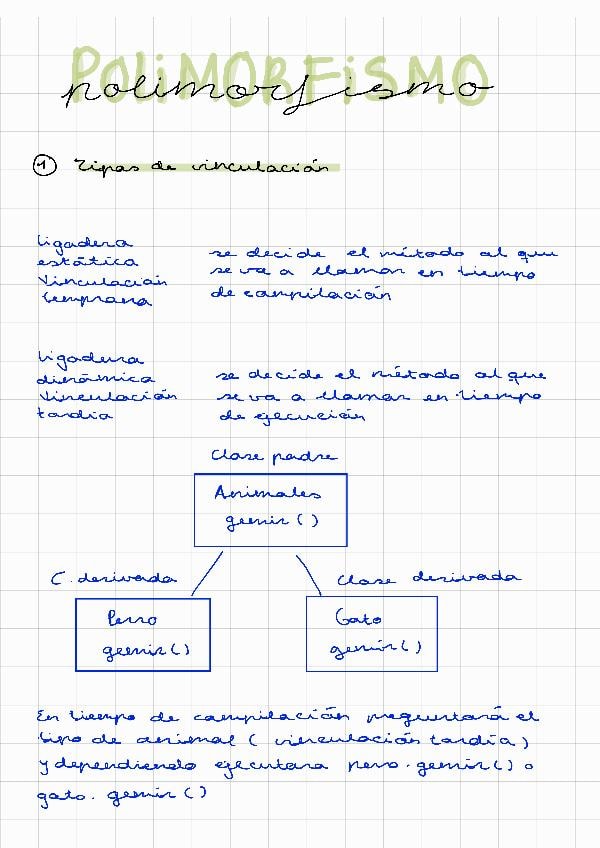 POLiMORFiSMO
polimorfismo
1 Tipos de vinculación
ligadura
estática
Vinculación
temprana
se decide el método al que
se va a llamar en tiempo
de compilación
ligadura
dinámica
Vinculación
tardía
se decide el método al que
se va a llamar en tiempo
de ejecución
Clase padre
Animales
gemir()
C. derivada
Clase derivada
Perro
gemir()
Gato
gemir()
En tiempo de compilación preguntará el
tipo de animal ( vinculación tardía )
y dependiendo ejecutara perro.gemir() o
gato. gemir()